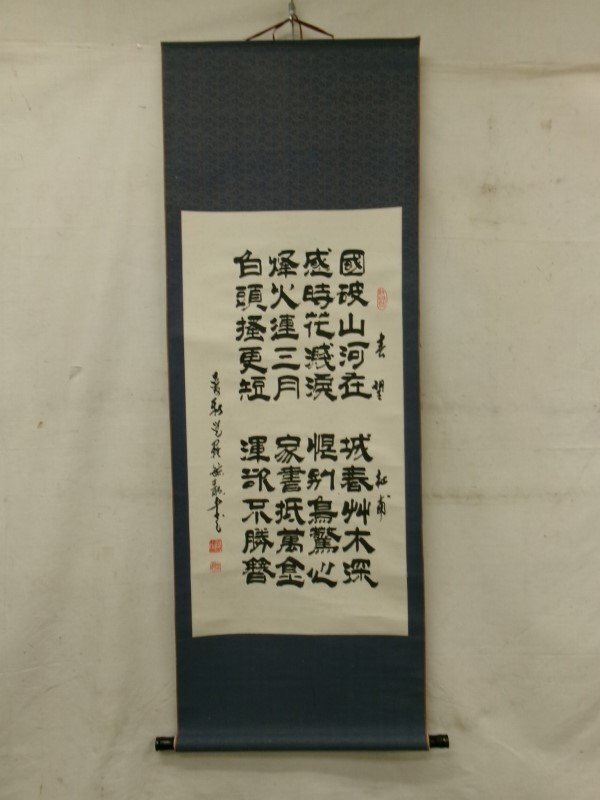 春望 杜甫
國破山河在 城春艸木深
感時花濺淚 恨別鳥驚心
烽火連三月 家書抵萬金
白頭搔更短 渾欲不勝簪
愛新覺羅毓書